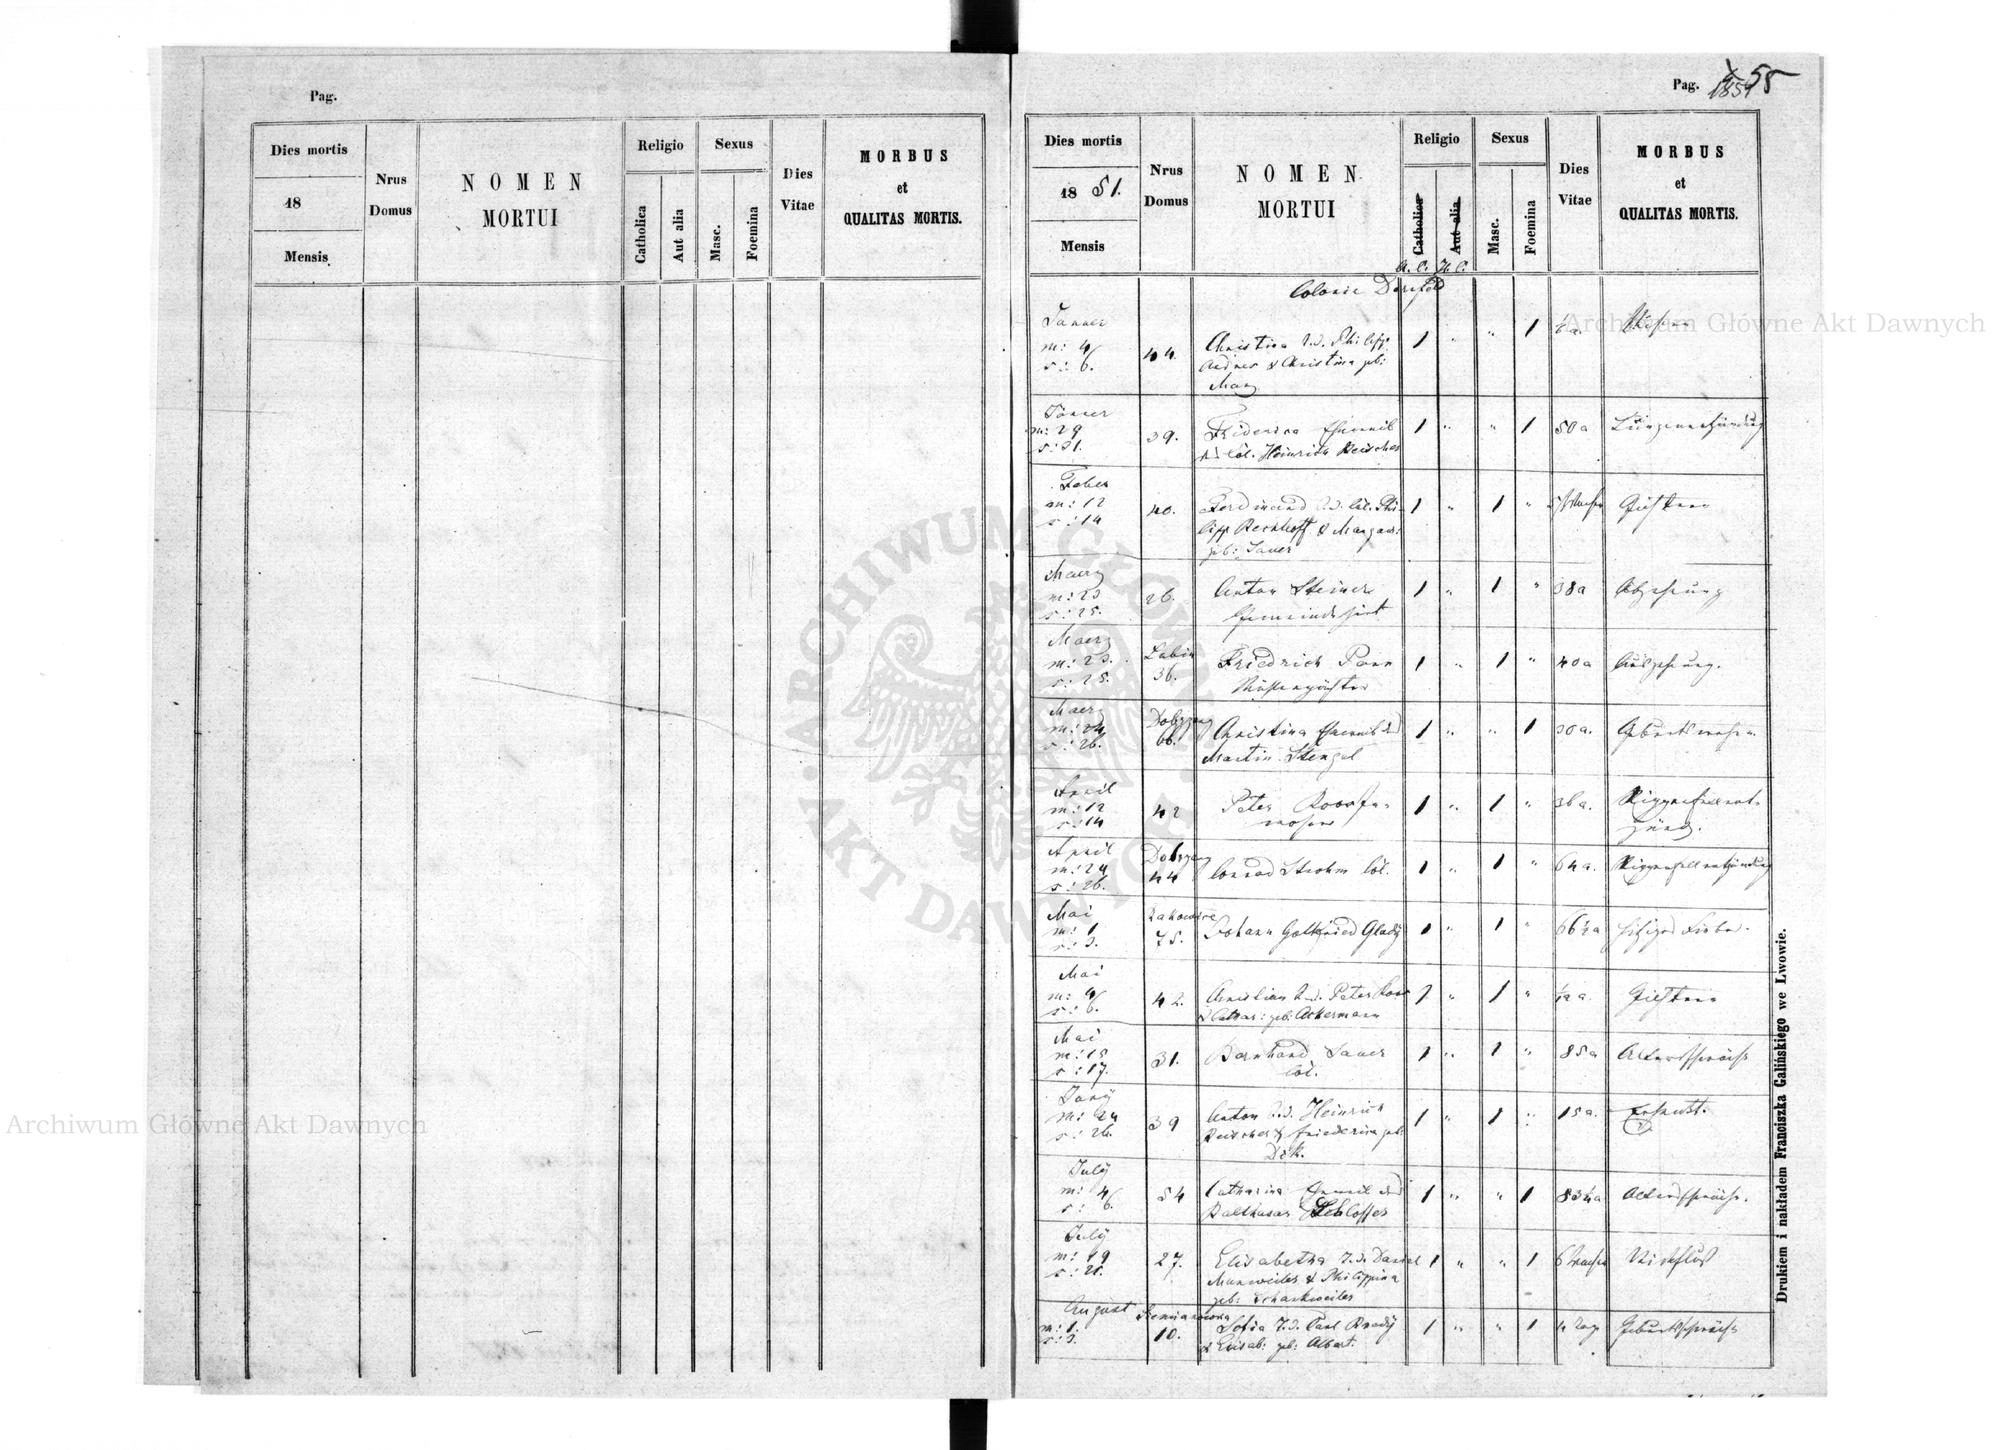 Pag.
Dies mortis
18
Mensis
Nrus
Domus
NOMEN
MORTUI
Religio
Catholica
Aut alia
Sexus
Masc.
Foemina
Dies
Vitae
MORBUS
et
QUALITAS MORTIS.
Pag. 1851 55
Dies mortis
18 51.
Mensis
Nrus
Domus
NOMEN
MORTUI
Religio
Catholica
Aut alia
A. C. H. C.
Sexus
Masc.
Foemina
Dies
Vitae
MORBUS
et
QUALITAS MORTIS.
Colonie Dornfeld
Janner
m: 4
s: 6.
44.
Christina T.d. Philipp
& Christina geb:
Manz
1 " " 1
Jänner
m: 29
s: 31.
39.
Friderica Eheweib
Heinrich Reischer
1 " " 1 50 a Lungenentzündung
Feber
m: 12
s: 14
40.
Ferdinand S.d. Col. Phi-
lipp Rechhoff & Margar:
geb: Sauer
1 " 1 " 5 Wochen
Maerz
m: 23
s: 25.
26.
Anton Steiner
Gemeindehirt
1 " 1 " 38 a Abzehrung
Maerz
m: 23.
s: 25.
Lubin
36.
Friedrich
1 " 1 " 40 a Auszehrung.
Maerz
m: 24
s: 26.
Dobrzany
66.
Christina Eheweib des
Martin Stengel
1 " " 1 30 a.
April
m: 12
s: 14
42
Peter
1 " 1 " 36 a. Rippenfellent-
zünd.
April
m: 24
s: 26.
Dobrzany
44
Conrad Strohm Col.
1 " 1 " 64 a. Rippenfellentzündung
Mai
m: 1
s: 3.
75.
Johann Gottfried Glady
1 " 1 " 66 ½ a hitziges Fieber.
Mai
m: 4
s: 6.
42.
Christian S.d. Peter
& Cathar: geb: Ackermann
1 " 1 "
Mai
m: 15
s: 17.
31.
Bernhard Sauer
Col.
1 " 1 " 85 a Altersschwäche
Juny
m: 24
s: 26.
39
Anton S.d. Heinrich
Reischer & Friederica geb:
Dik.
1 " 1 " 15 a.
July
m: 4
s: 6.
54
Catharina Eheweib des
Balthasar Schlosser
1 " " 1 Altersschwäche.
July
m: 19
s: 21.
27.
Elisabetha T.d. Daniel
Manweiler & Philippina
geb: Schankweiler
1 " " 1 6 Wochen
August
m: 1.
s: 3.
10.
Sofia T.d. Paul
& Elisab: geb: Albert.
1 " " 1 4 Tage Geburtsschwäche
Drukiem i nakładem Franciszka Galińskiego we Lwowie.
Archiwum Główne Akt Dawnych
Archiwum Główne Akt Dawnych
ARCHIWUM GŁÓWNE AKT DAWNYCH